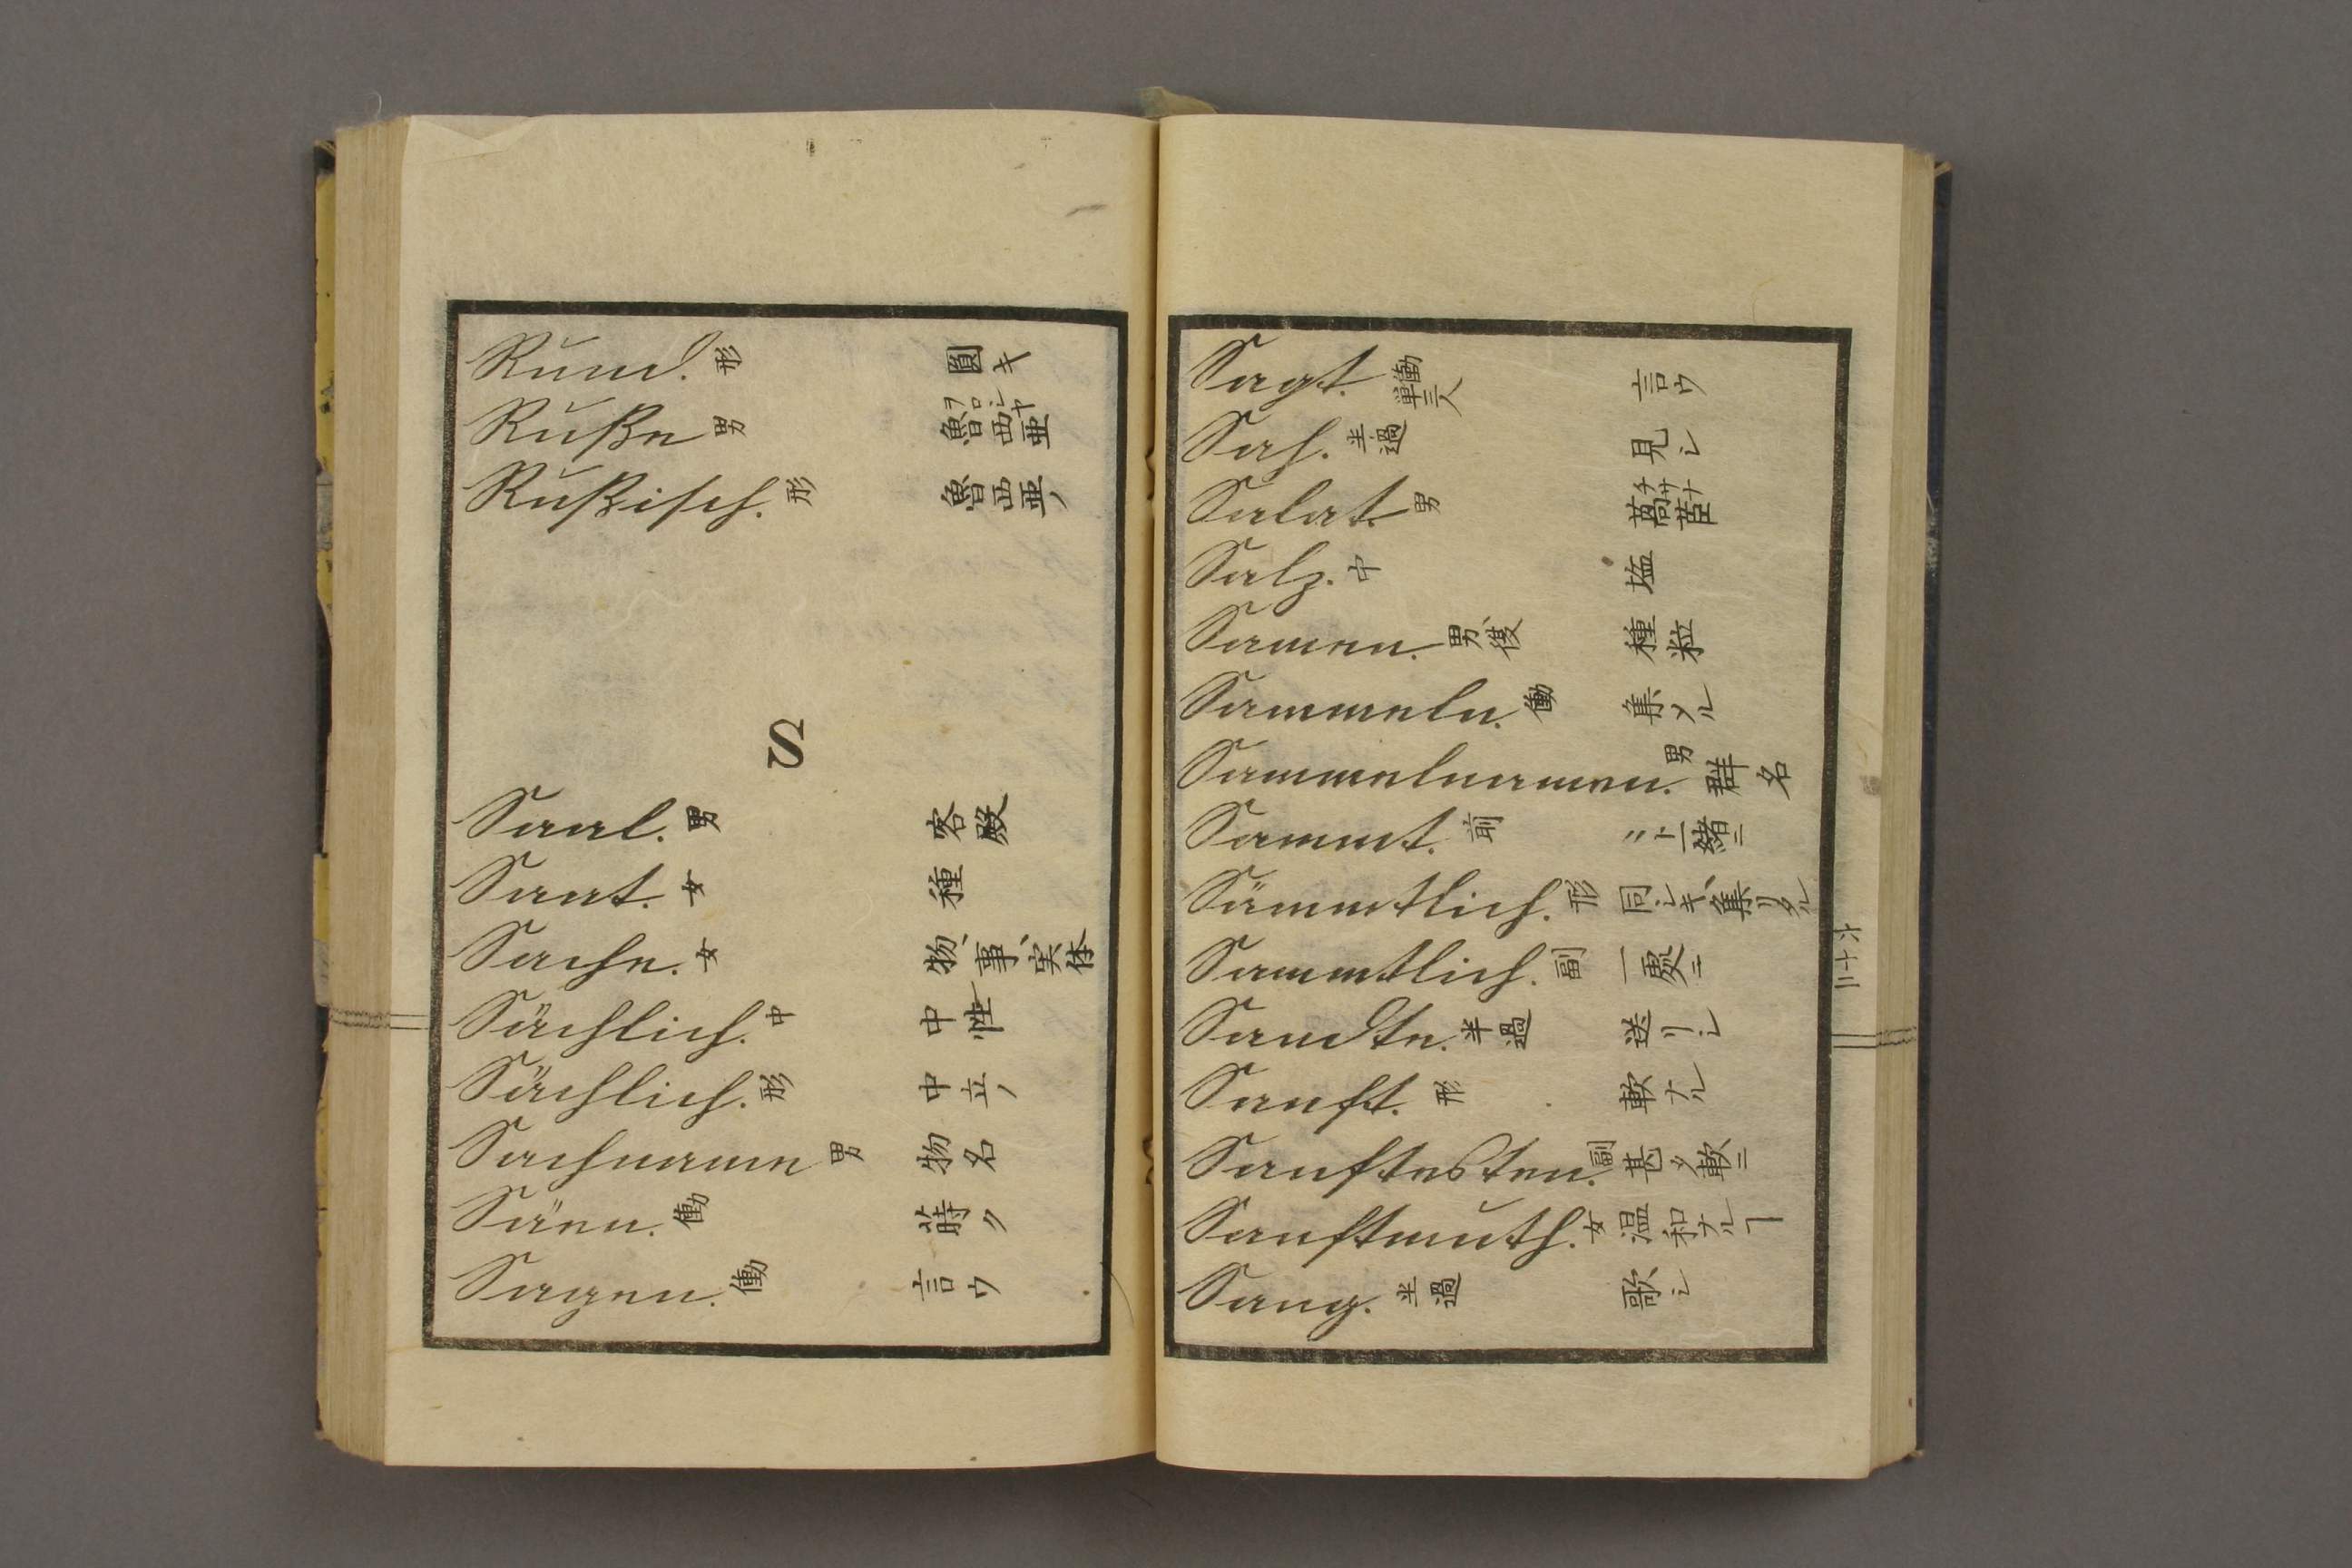 Rund. 形 圓キ
Rußze 男 魯西亜 ヲロシヤ
Rußzisch. 形 魯西亜ノ
S
Saal. 男 客殿
Saat. 女 種
Sache. 女 物、事、実体
Sächlich. 中 中性
Sächlich. 形 中立ノ
Sachname 男 物名
Säen. 働 蒔ク
Sagen. 働 言ウ
Sagt. 働単三人 言ウ
Sah. 半過 見シ
Salat. 男 萵苣 チサナ
Salz. 中 塩
Samen. 男、復 種粒
Sammeln. 働 集メル
Sammelnamen. 男 群名
Sammt. 前 〃ト一緒ニ
Sämmtlich. 形 同シキ、集リタル
Sammtlich. 副 一處ニ
Sandte. 半過 送リシ
Sanft. 形 軟ナル
Sanftesten. 副 甚タ軟ニ
Sanftmuth. 女 温和ナルヿ
Sang. 半過 歌シ